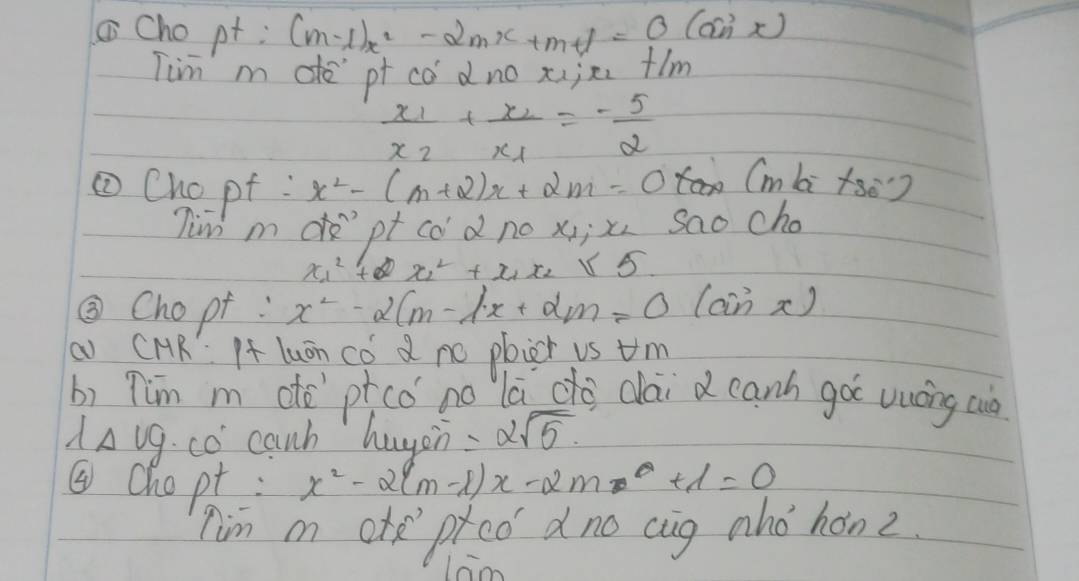 ① Cho pt : (m-1)x² - 2mx + m+1 = 0 (ẩn x)
Tìm m để pt có 2 no x₁; x₂ t/m
x₁/x₂ + x₂/x₁ = -5/2
② Cho pt : x² - (m+2)x + 2m = 0 (m là t số)
Tìm m để pt có 2 no x₁; x₂ sao cho
x₁² + x₂² + x₁x₂ ≤ 5
③ Cho pt : x² - 2(m-1)x + 2m = 0 (ẩn x)
a) CMR : Pt luôn có 2 no pbiệt vs ∀m
b) Tìm m để pt có no là độ dài 2 cạnh góc vuông của
1 Δ vg. có cạnh huyền = 2√5.
④ Cho pt : x² - 2(m-1)x - 2m + 1 = 0
Tìm m để pt có 2 no cùg nhỏ hơn 2.
làm